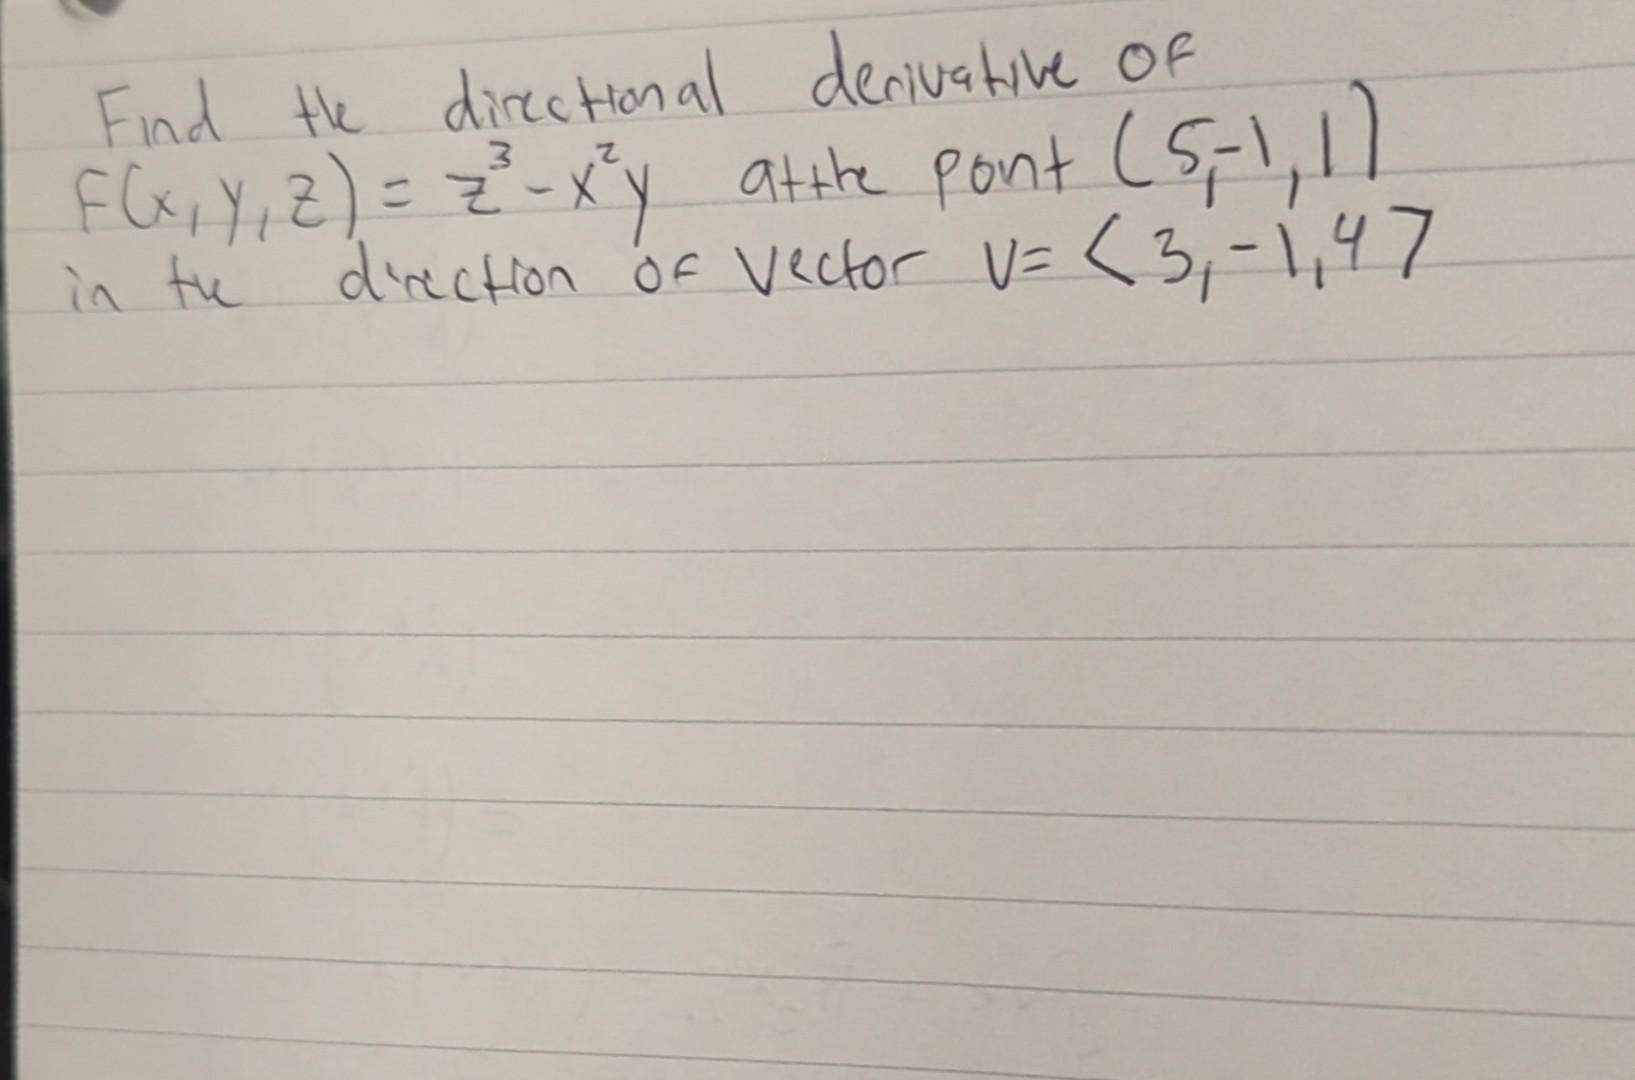 Find the directional derivative of
F(x, y, z) = z³ - x²y at the point (5, -1, 1)
in the direction of vector v = <3, -1, 4>